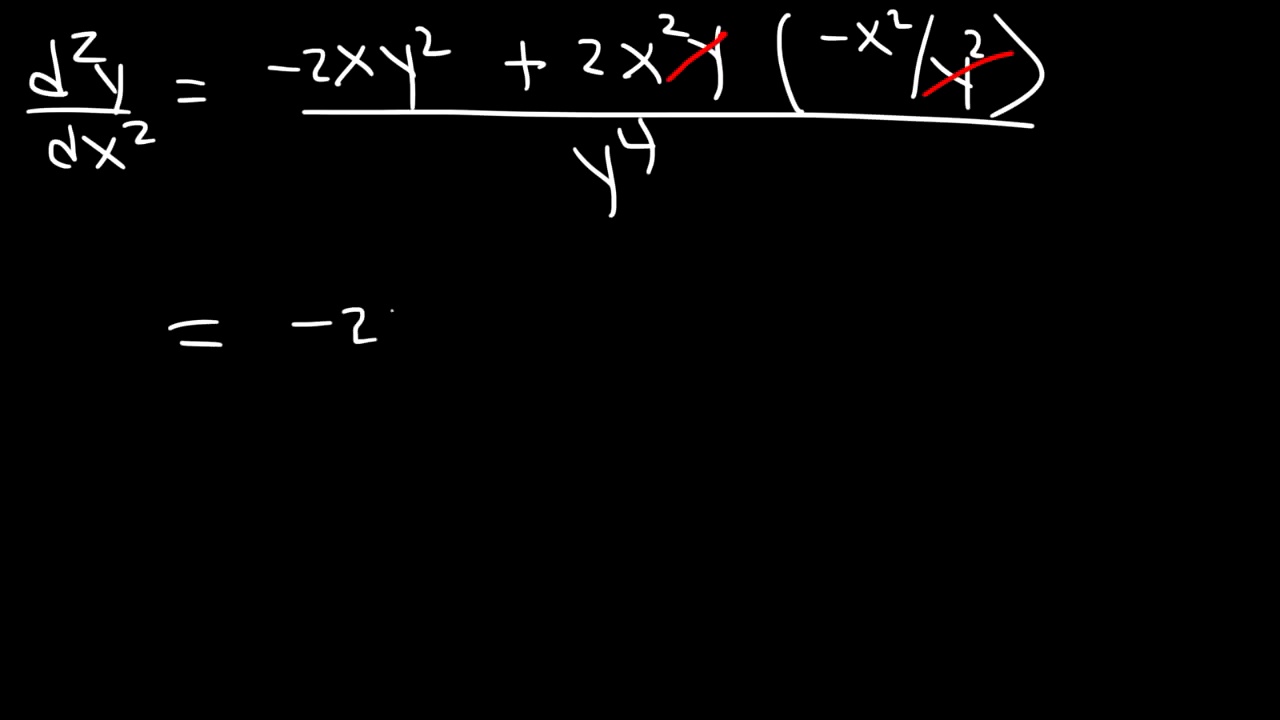 d²y/dx² = (-2xy² + 2x²y (-x²/y²))/y⁴
= -2